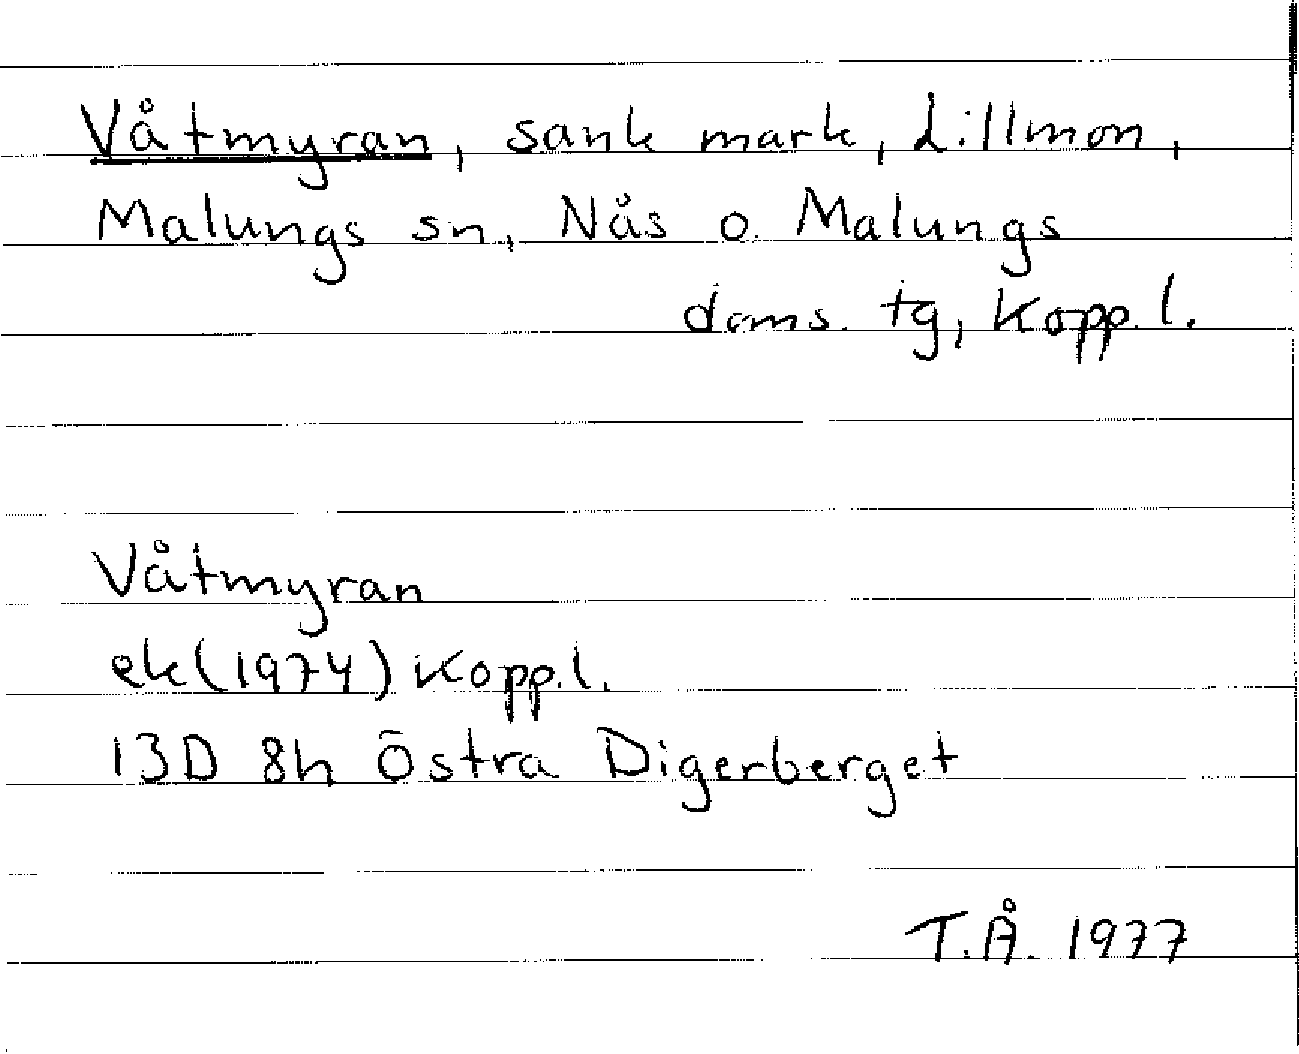 Våtmyran, sank mark, Lillmon,
Malungs sn, Nås o. Malungs
doms. tg, Kopp. l.
Våtmyran
ek (1974) Kopp. l.
13D 8h Östra Digerberget
T.Å. 1977